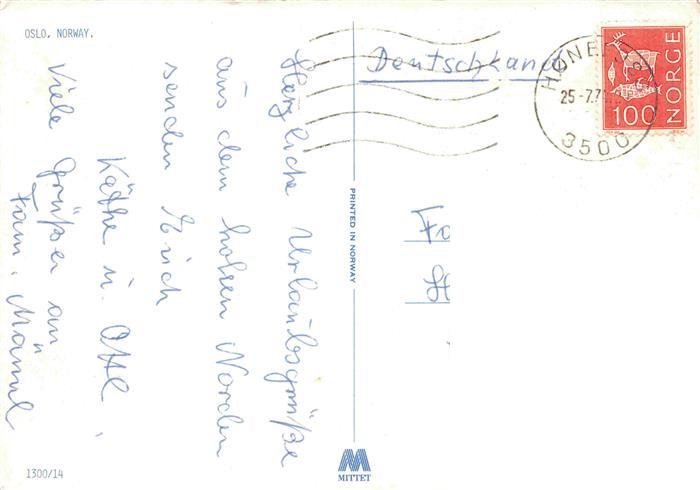 OSLO, NORWAY.
Herzliche Urlaubsgrüße
aus dem hohen Norden
senden Euch
Käthe u.
Viele Grüße an
Fam.
1300/14
PRINTED IN NORWAY
MITTET
Deutschland
HØNEFOSS
25-7.7
3500
NORGE
100